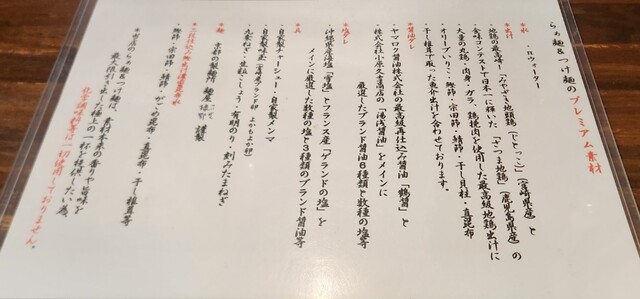 らぁ麺&つけ麺のプレミアム素材
*水
・ロウォーター
*出汁
地鶏の最高峰！「みやざき地頭鶏(じとっこ)」(宮崎県産)と
食味コンテストで日本一に輝いた「さつま地鶏」(鹿児島県産)の
大量の丸鶏・肉身・ガラ、鶏挽肉を使用した最高級地鶏出汁に
オリーブいりこ・鰹節・宗田節・鯖節・干し貝柱・真昆布
・干し椎茸で取った魚介出汁を合わせております。
*醤油ダレ
ヤマロク醤油株式会社の最高級再仕込み醤油「鶴醤」と
株式会社小原久吉商店の「湯浅醤油」をメインに
厳選したブランド醤油6種類と数種の塩等
*塩ダレ
沖縄県産海塩「雪塩」とフランス産「ゲランドの塩」を
メインに厳選した数種の塩と3種類のブランド醤油等
*具
・自家製チャーシュー・自家製メンマ
・自家製味玉(宮崎産ブランド卵 よかもよか卵)
・九条ねぎ・生粒こしょう・有明のり・刻みたまねぎ
*麺
京都の製麺所 麺屋棣鄂 謹製
*三段仕込み
鰹節・宗田節・鯖節・がごめ昆布・真昆布・干し椎茸等
*当店のらぁ麺&つけ麺は、素材本来の香りや旨味を
最大限引き出した極上の一杯を提供したい為、
化学調味料等は一切使用しておりません。